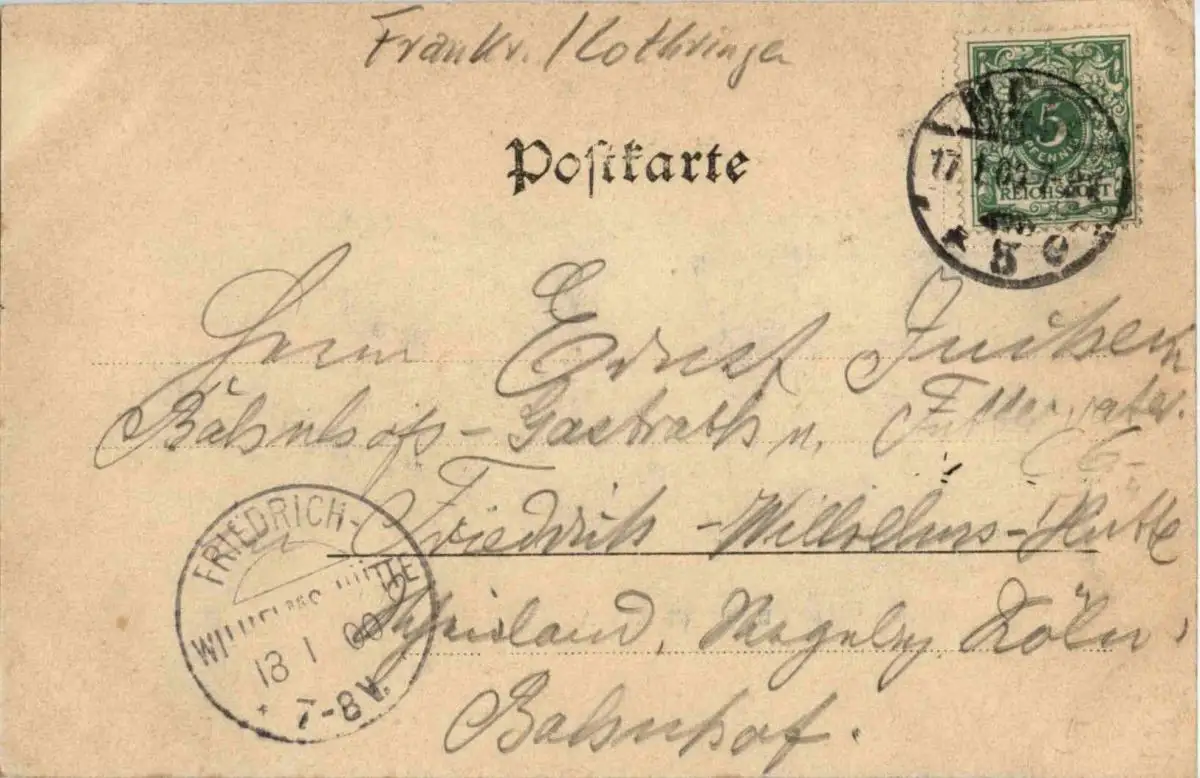 Frankr. / Lothringen
Postkarte
5
PFENNIG
REICHSPOST
17 1 00 7
Herrn Ernst
Bahnhofs-Gastrath u.
Friedrich-Wilhelms-Hütte
Rheinland, Köln
Bahnhof.
FRIEDRICH-
WILHELMS-HÜTTE
18 1 00
7-8 V.